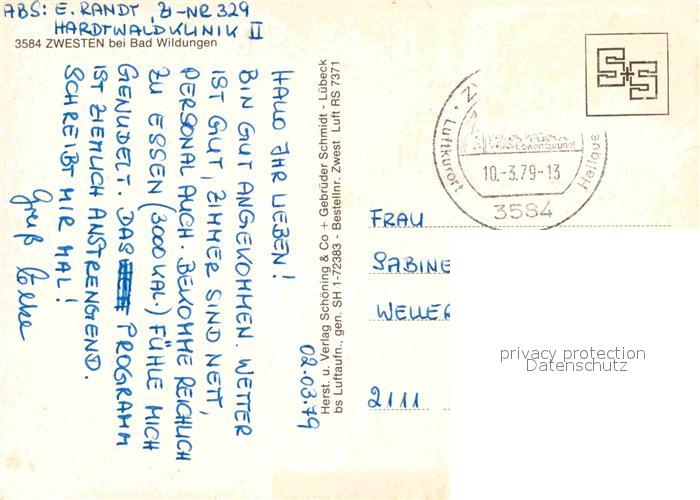 ABS: E. RANDT, Zi-NR 329
HARDTWALDKLINIK II
3584 ZWESTEN bei Bad Wildungen
HALLO IHR LIEBEN!
BIN GUT ANGEKOMMEN. WETTER
IST GUT, ZIMMER SIND NETT,
PERSONAL AUCH. BEKOMME REICHLICH
ZU ESSEN (3000 KAL.) FÜHLE MICH
GENUDELT. DAS PROGRAMM
IST ZIEMLICH ANSTRENGEND.
SCHREIBT MIR MAL!
Gruß
02.03.79
Herst. u. Verlag Schöning & Co + Gebrüder Schmidt - Lübeck
bs Luftaufn., gen. SH 1-72383 - Bestellnr. Zwest Luft RS 7371
S+S
Z
Luftkurort
Löwensprudel
10.-3.79-13
3584
FRAU
SABINE
WELLER
2111
privacy protection
Datenschutz